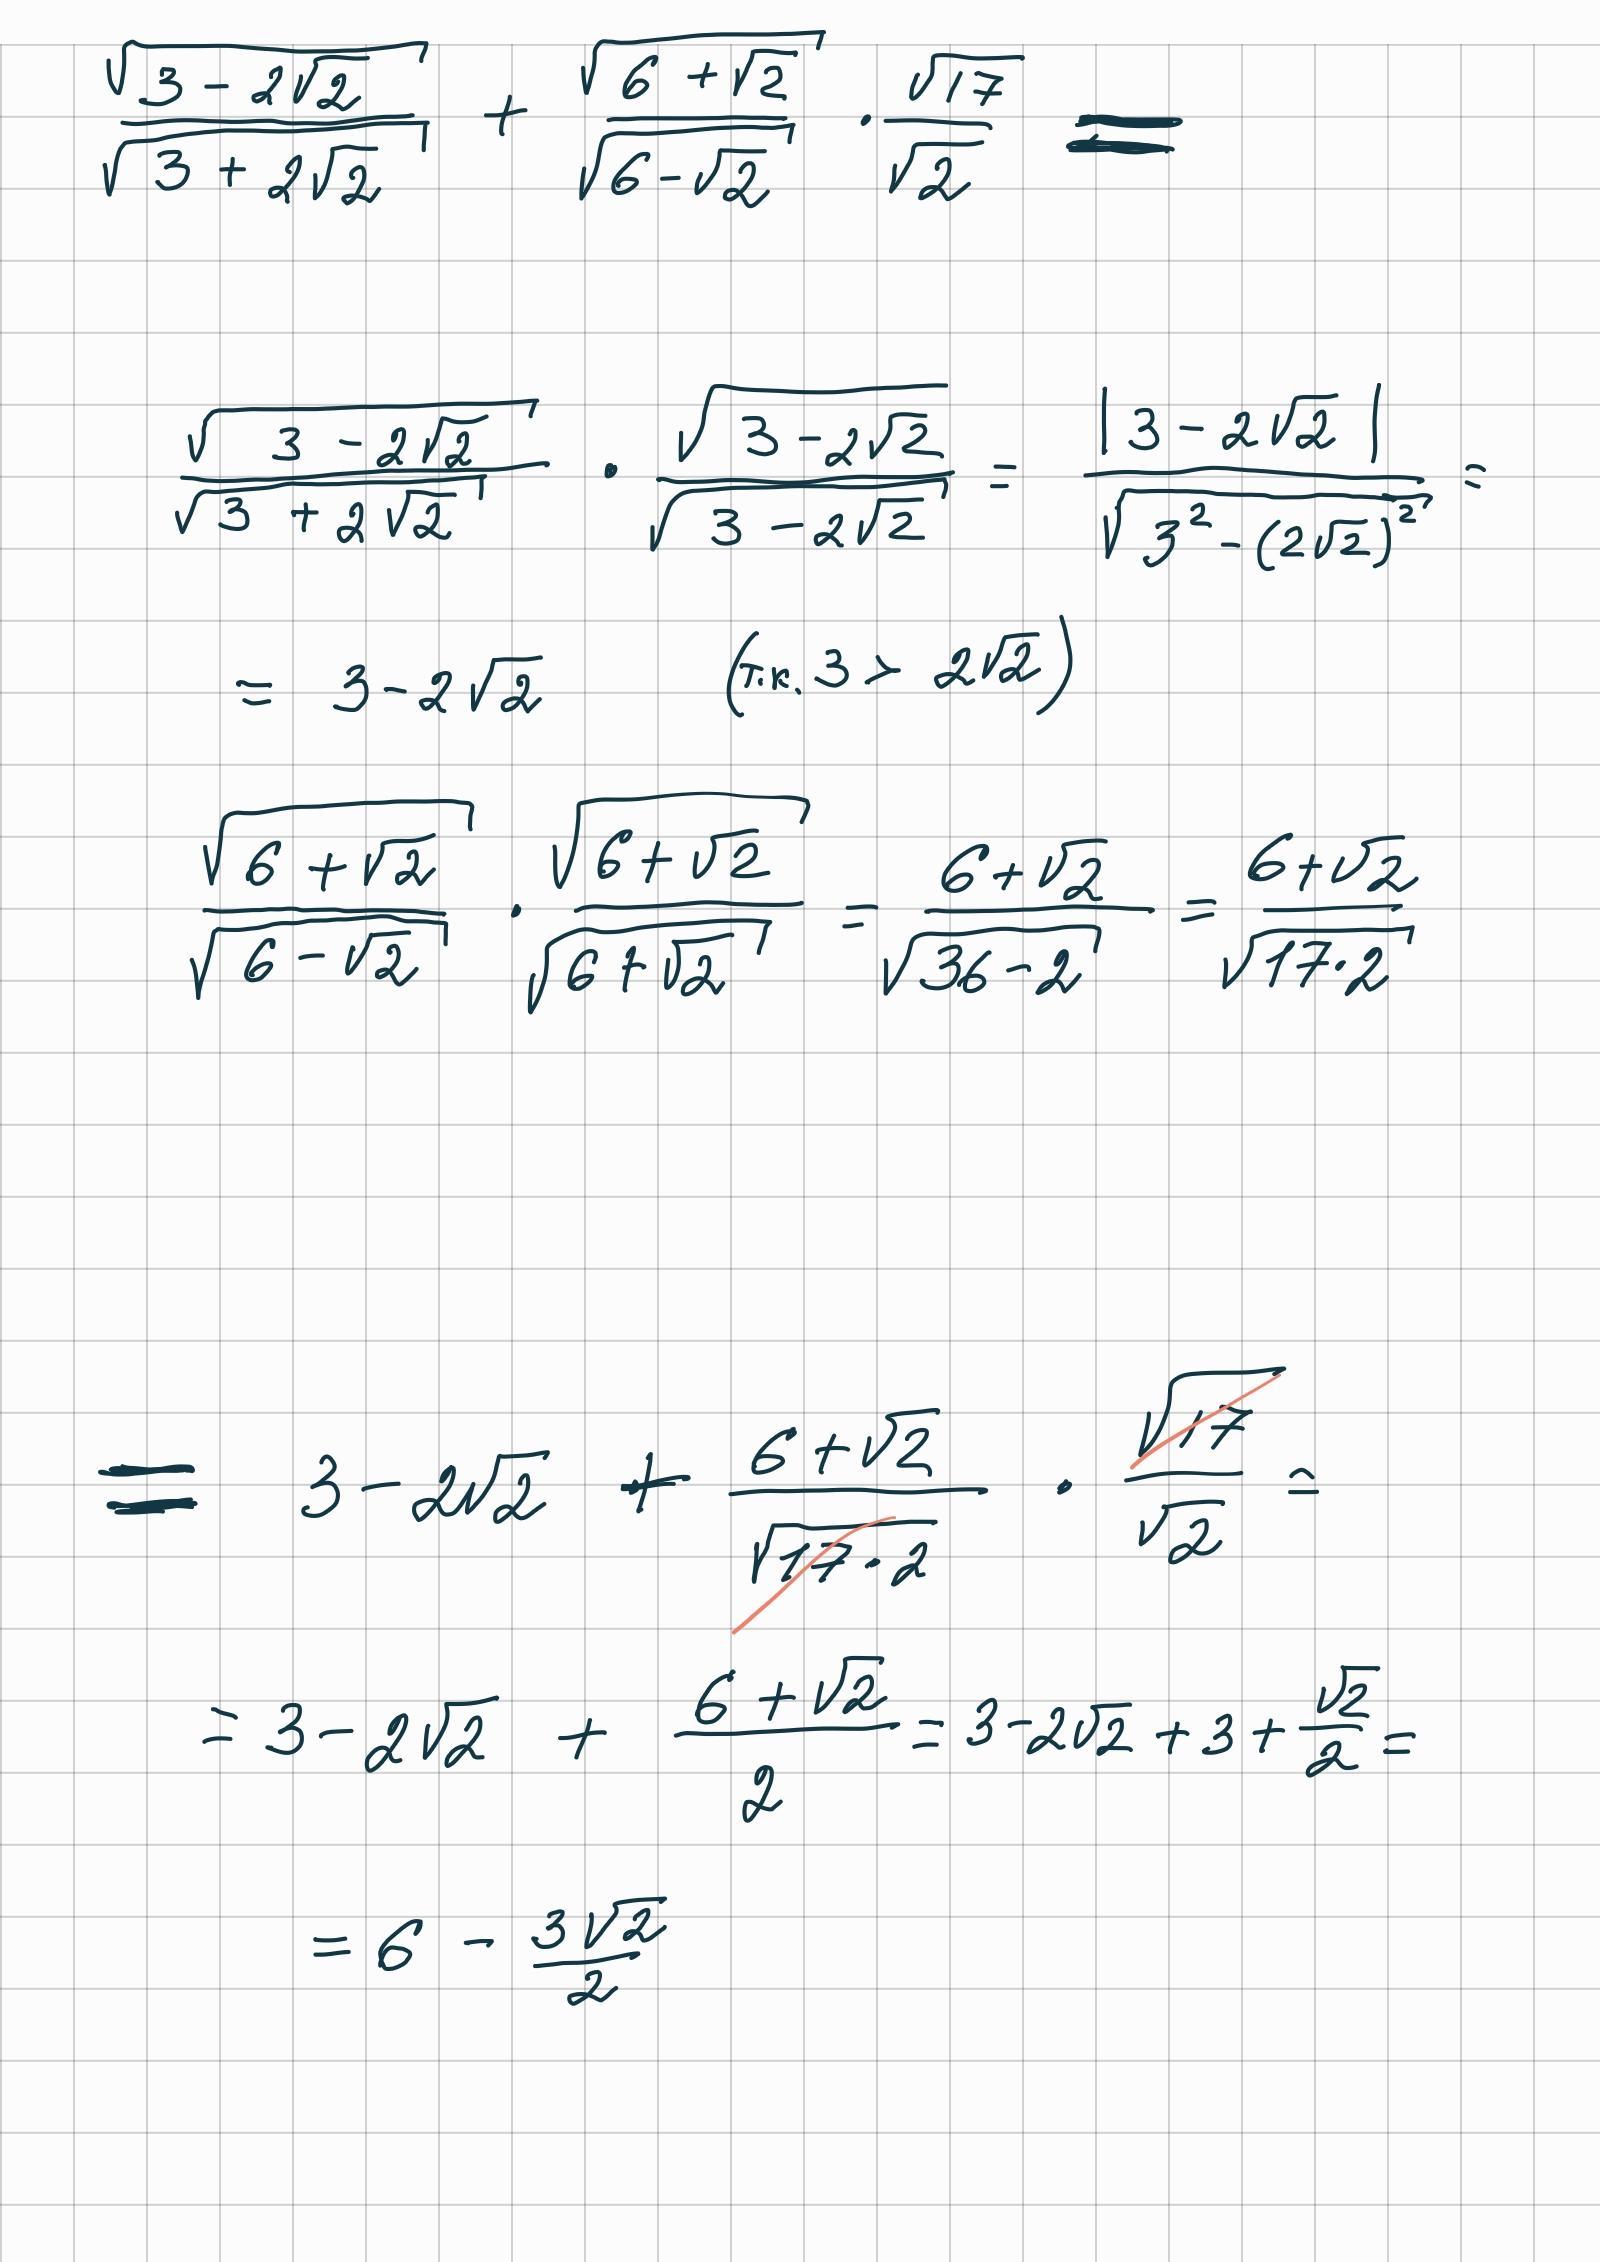 √(3 - 2√2) / √(3 + 2√2) + √(6 + √2) / √(6 - √2) · √17 / √2 =
√(3 - 2√2) / √(3 + 2√2) · √(3 - 2√2) / √(3 - 2√2) = |3 - 2√2| / √(3² - (2√2)²) =
= 3 - 2√2 (т.к. 3 > 2√2)
√(6 + √2) / √(6 - √2) · √(6 + √2) / √(6 + √2) = (6 + √2) / √(36 - 2) = (6 + √2) / √(17·2)
= 3 - 2√2 + (6 + √2) / √(17·2) · √17 / √2 =
= 3 - 2√2 + (6 + √2) / 2 = 3 - 2√2 + 3 + √2 / 2 =
= 6 - 3√2 / 2